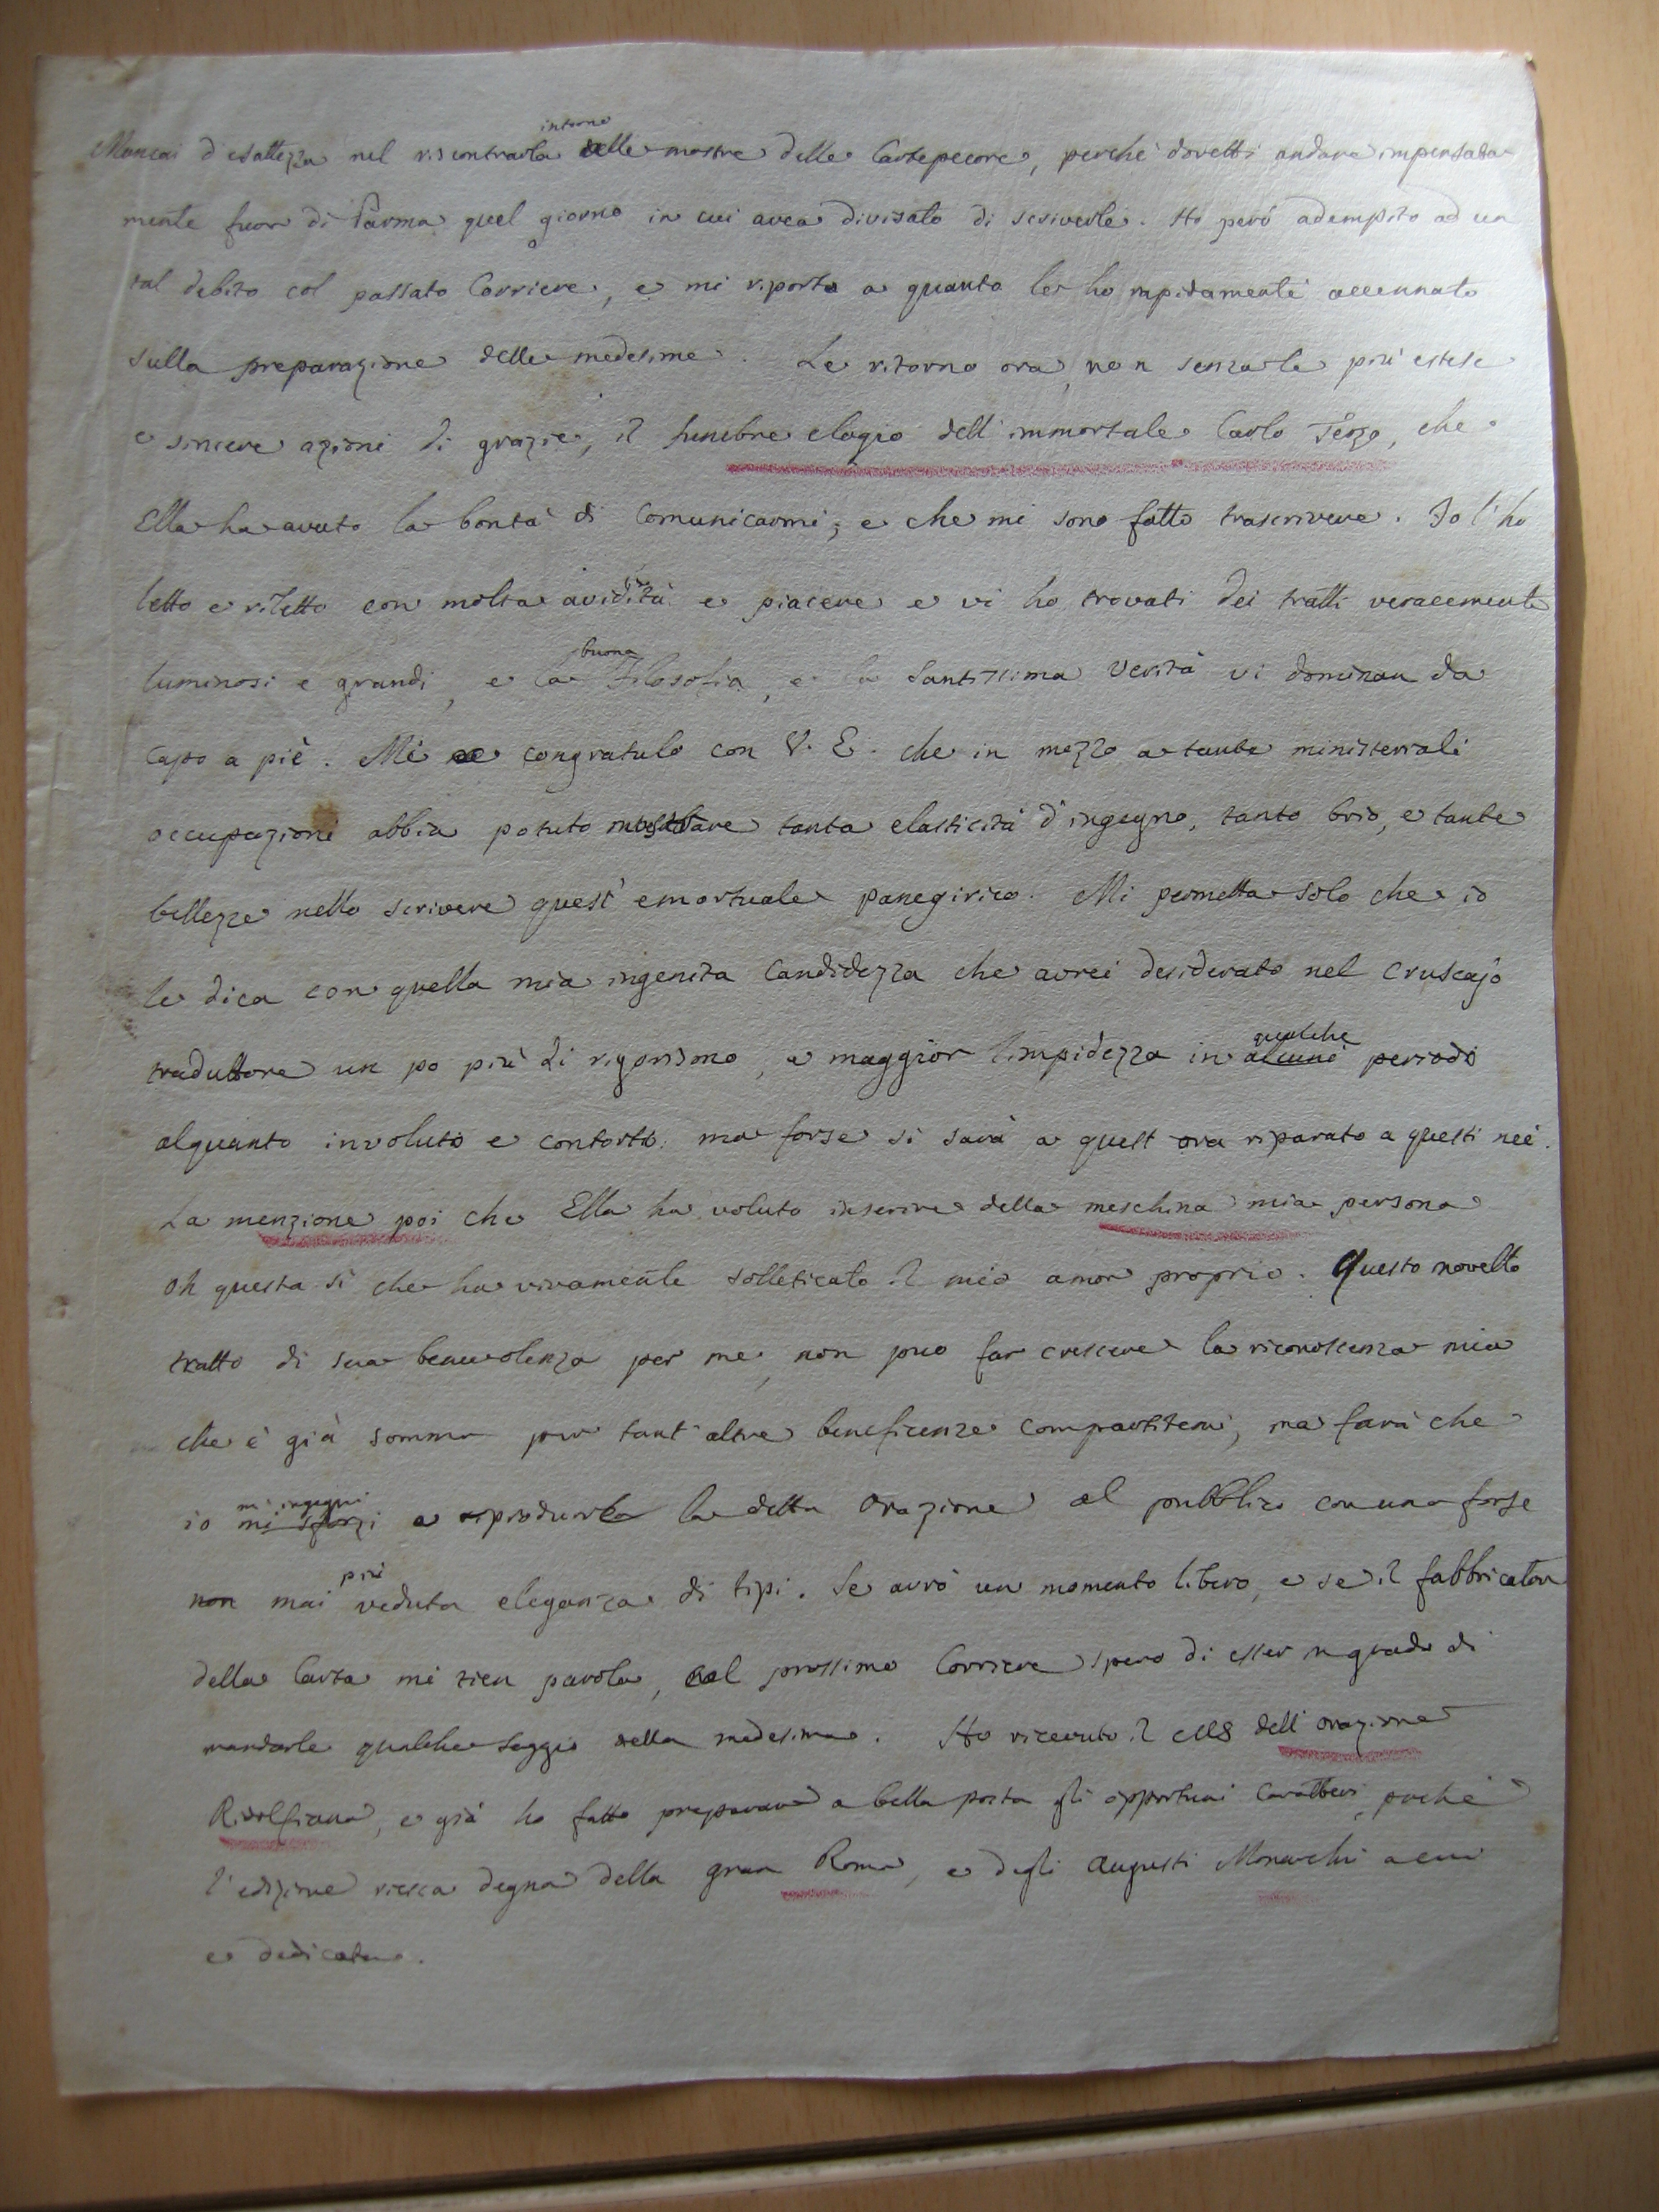 Mancai d'esattezza nel riscontrarla intorno alle mostre delle Cartepecore, perchè dovetti andare impensata-
mente fuor di Parma quel giorno in cui avea divisato di scriverle. Ho però adempito ad un
tal debito col passato Corriere, e mi riporto a quanto le ho rapidamente accennato
sulla preparazione delle medesime. Le ritorno ora, non senza le più estese
e sincere azioni di grazie, il funebre elogio dell'immortale Carlo Terzo, che
Ella ha avuto la bontà di comunicarmi, e che mi sono fatto trascrivere. Io l'ho
letto e riletto con molta avidità e piacere e vi ho trovati dei tratti veracemente
luminosi e grandi, e la buona Filosofia, e la Santissima Verità vi dominan da
capo a piè. Mi congratulo con V. E. che in mezzo a tante ministeriali
occupazioni abbia potuto mostrare tanta elasticità d'ingegno, tanto brio, e tante
bellezze nello scrivere quest'emortuale panegirico. Mi permetta solo che io
le dica con quella mia ingenita candidezza che avrei desiderato nel cruscajo
traduttore un po più di rigorismo, e maggior limpidezza in alcuni qualche periodo
alquanto involuto e contorto: ma forse si sarà a quest'ora riparato a questi nei.
La menzione poi che Ella ha voluto inserire della meschina mia persona
oh questa sì che ha vivamente solleticato il mio amor proprio. Questo novello
tratto di sua benevolenza per me, non può far crescere la riconoscenza mia
che è già somma per tant'altre beneficenze compartitemi, ma farà che
io mi sforzi m'ingegni a riprodurre la detta Orazione al pubblico con una forse
non mai più veduta eleganza di tipi. Se avrò un momento libero, e se il fabbricator
della Carta mi tien parola, col prossimo Corriere spero di esser in grado di
mandarle qualche saggio della medesima. Ho ricevuto il MS dell'orazione
Ridolfiana, e già ho fatto preparare a bella posta gli opportuni Caratteri, perchè
l'edizione riesca degna della gran Roma, e degli Augusti Monarchi a cui
è dedicata.